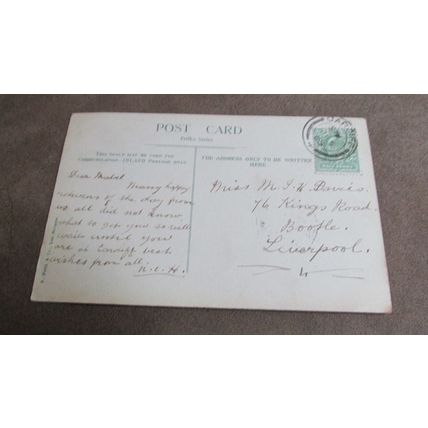 POST CARD
THIS SPACE MAY BE USED FOR
COMMUNICATION INLAND POSTAGE ONLY
THE ADDRESS ONLY TO BE WRITTEN
HERE
Dear Mabel
Many happy
returns of the day from
us all did not know
what to get you so will
wait until you
are at Cardiff best
wishes from all.
N. L. H.
Miss M. I. H. Davis.
76 Kings Road.
Bootle.
Liverpool.
4